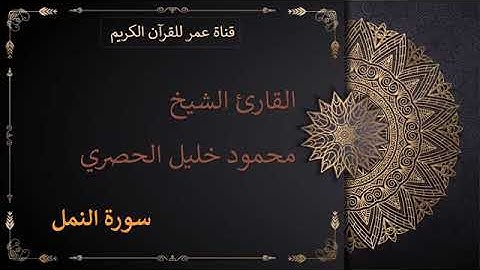 قناة عمر للقرآن الكريم
القارئ الشيخ
محمود خليل الحصري
سورة النمل